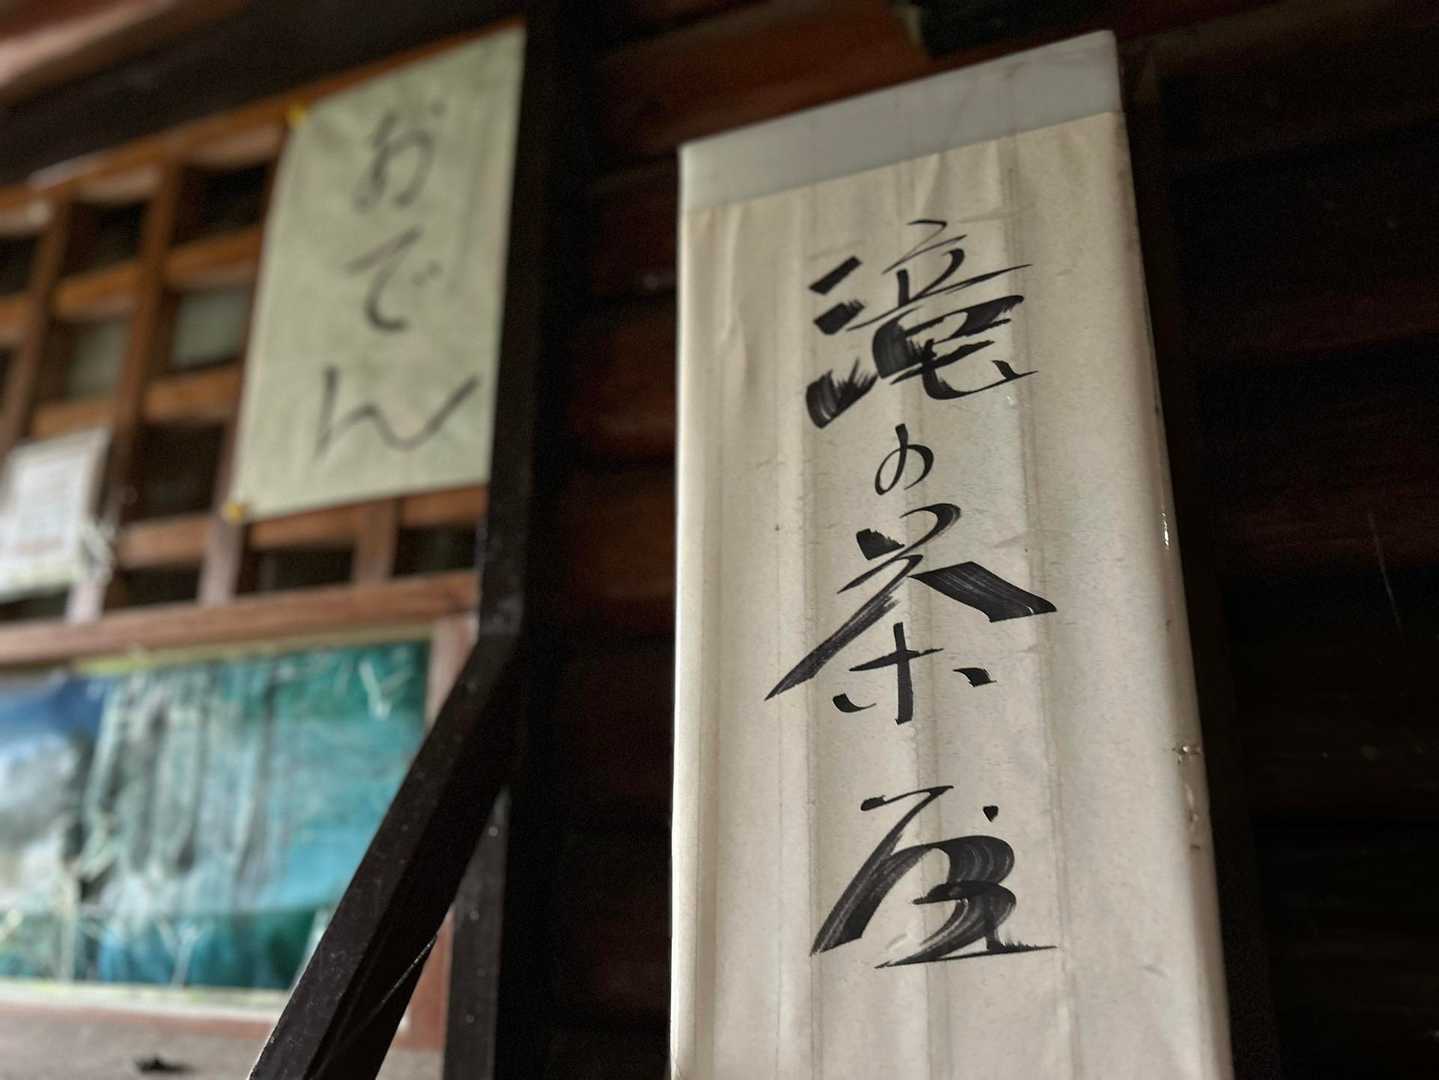 おでん
滝の茶屋